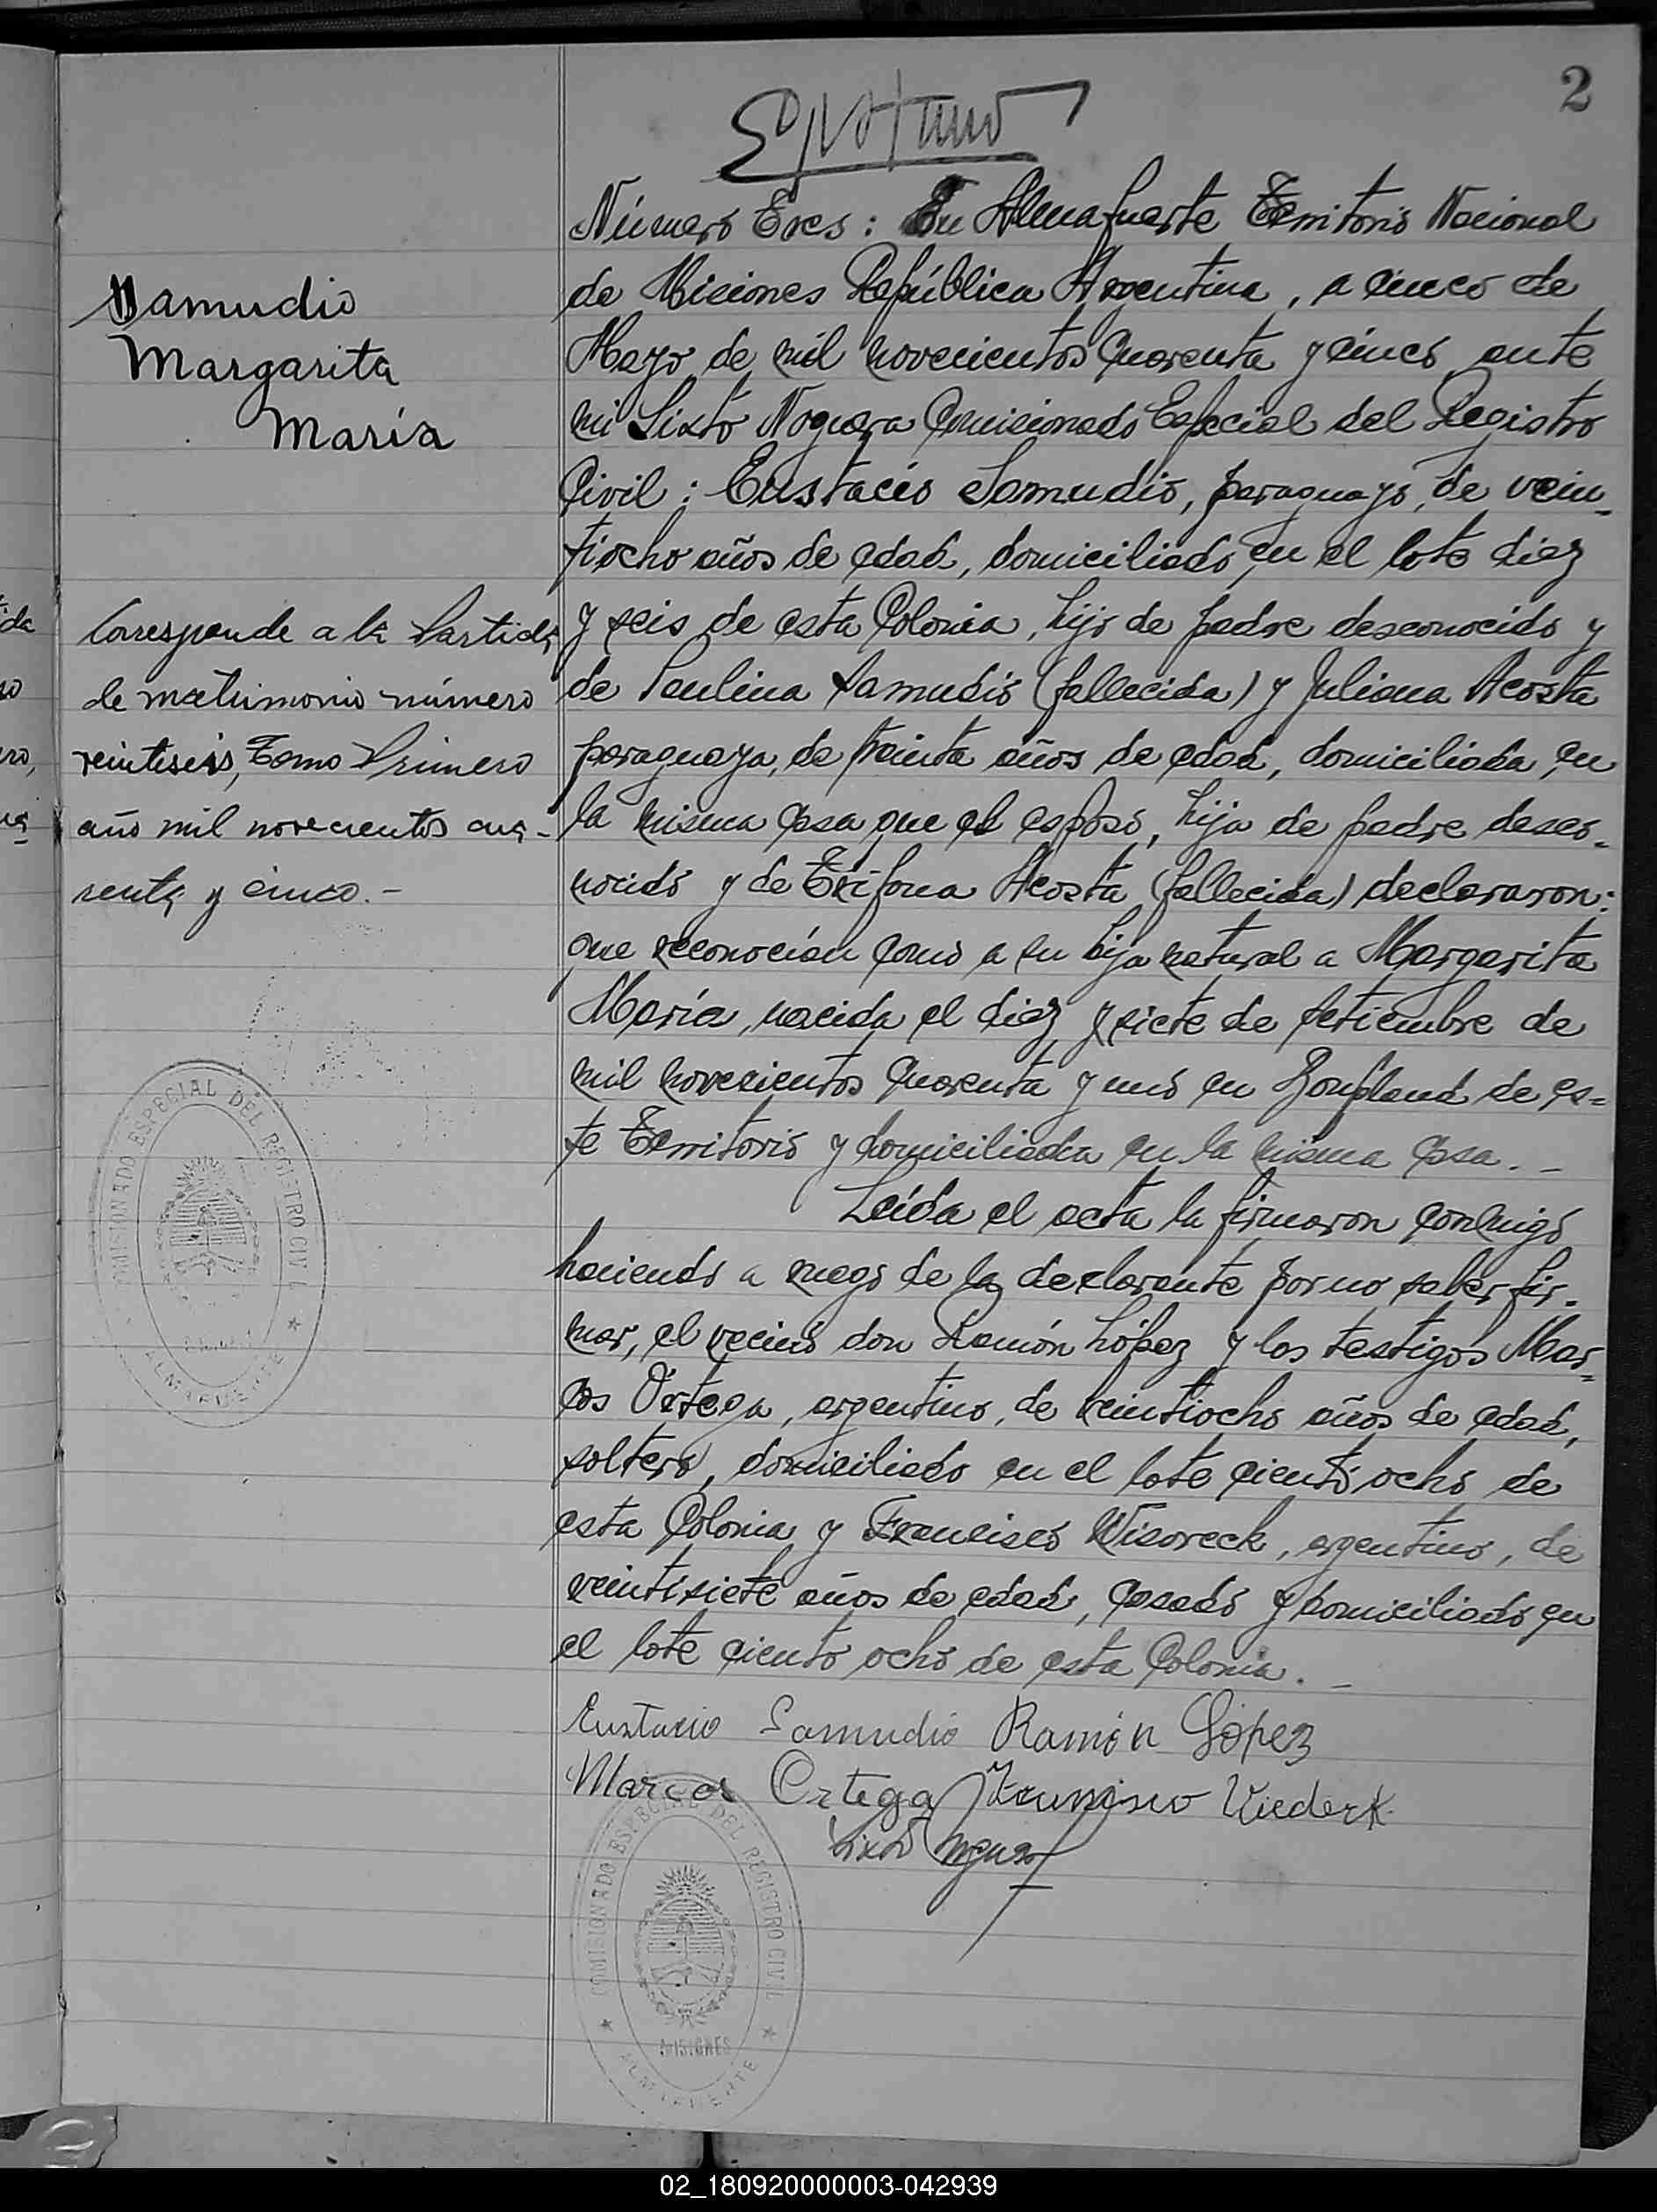 2
Número Tres: En Almafuerte Territorio Nacional
de Misiones República Argentina, a cinco de
Mayo de mil novecientos cuarenta y cinco, ante
mi Sixto Noguera Comisionado Especial del Registro
Civil: Eustacio Samudio, paraguayo, de vein-
tiocho años de edad, domiciliado en el lote diez
y seis de esta Colonia, hijo de padre desconocido y
de Paulina Samudio (fallecida) y Juliana Acosta
paraguaya, de treinta años de edad, domiciliada en
la misma casa que el esposo, hija de padre desco-
nocido y de Trifona Acosta (fallecida) declararon:
que reconocían como a su hija natural a Margarita
María, nacida el diez y siete de setiembre de
mil novecientos cuarenta y uno en Bonpland de es-
te Territorio y domiciliada en la misma casa. -
Leída el acta la firmaron conmigo
haciendo a ruego de la declarante por no saber fir-
mar, el vecino don Ramón López y los testigos Mar-
cos Ortega, argentino, de veintiocho años de edad,
soltero, domiciliado en el lote ciento ocho de
esta Colonia y Francisco Wisoreck, argentino, de
veintisiete años de edad, casado y domiciliado en
el lote ciento ocho de esta Colonia. -
Eustacio Samudio Ramón López
Marcos Ortega Francisco Viederk
Sixto Noguera
Samudio
Margarita
María
Corresponde a la Partida
de matrimonio número
veintiseis, Tomo Primero
año mil novecientos cua-
renta y cinco. -
COMISIONADO ESPECIAL DEL REGISTRO CIVIL
ALMAFUERTE
COMISIONADO ESPECIAL DEL REGISTRO CIVIL
MISIONES
ALMAFUERTE
02_180920000003-042939